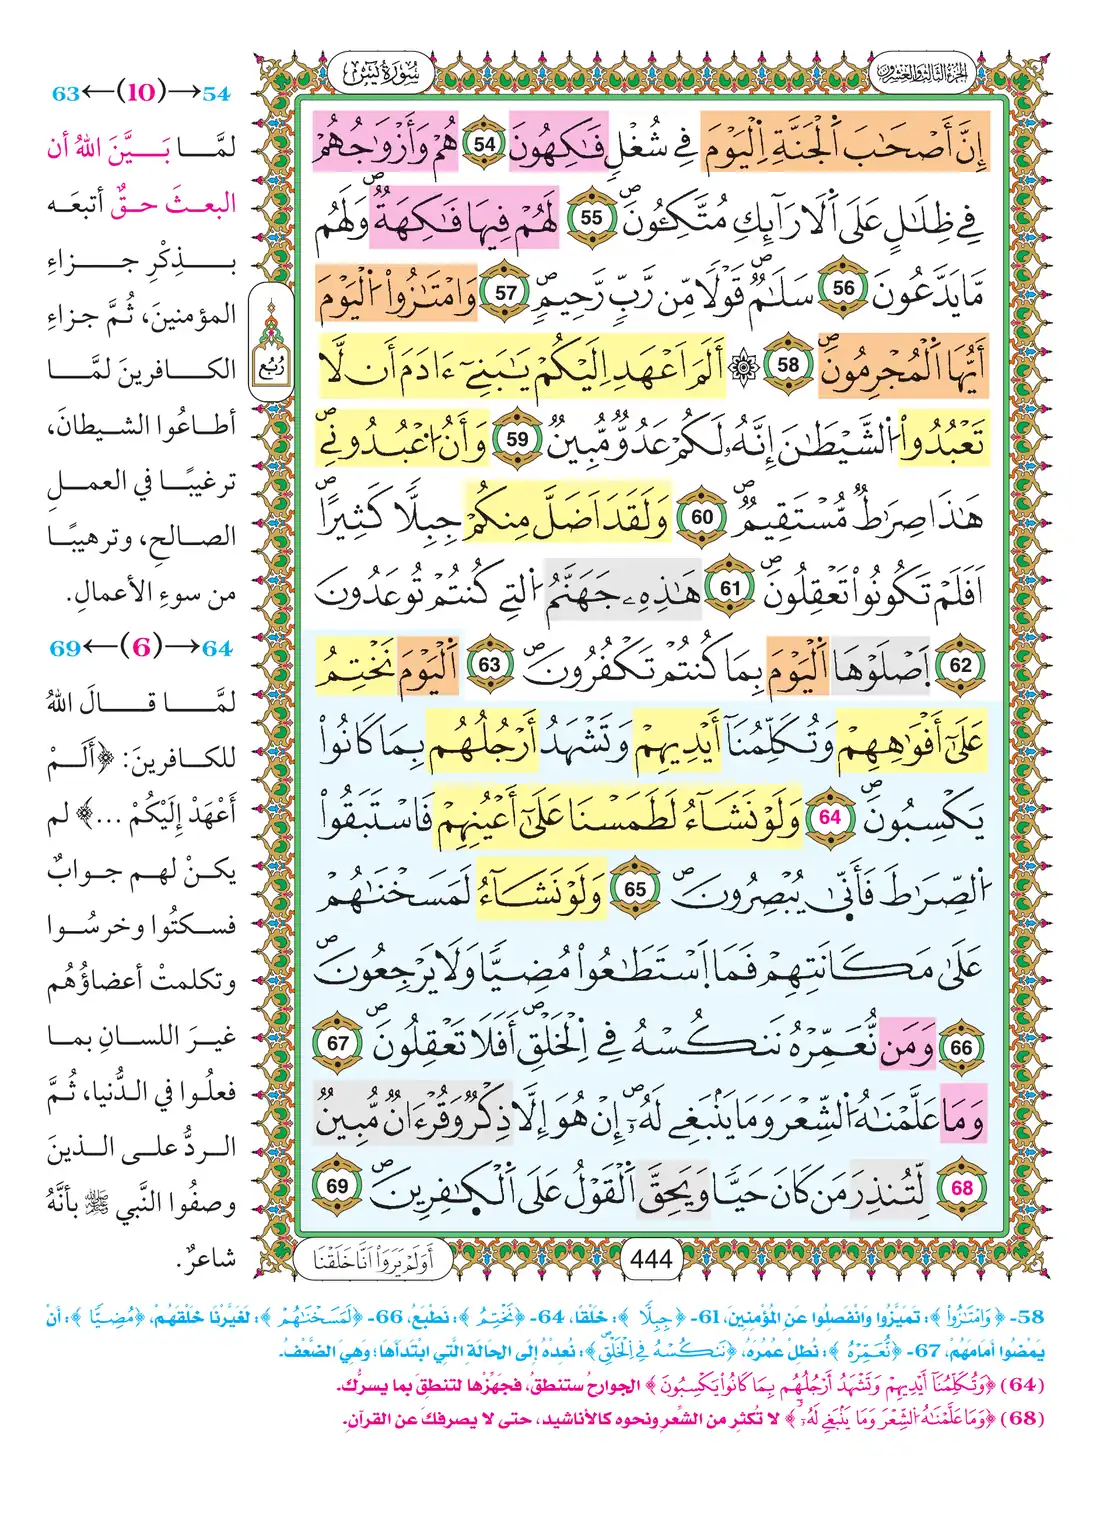 سُورَةُ يسٓ
الجزء الثالث والعشرون
إِنَّ أَصْحَٰبَ اَ۬لْجَنَّةِ اِ۬لْيَوْمَ فِے شُغْلٖ فَٰكِهُونَ 54 هُمْ وَأَزْوَٰجُهُمْ
فِے ظِلَٰلٍ عَلَى اَ۬لَارَآئِكِ مُتَّكِـُٔونَۖ 55 لَهُمْ فِيهَا فَٰكِهَةٞۖ وَلَهُم
مَّا يَدَّعُونَ 56 سَلَٰمٞۖ قَوْلاٗ مِّن رَّبّٖ رَّحِيمٖۖ 57 وَامْتَٰزُواْ اُ۬لْيَوْمَ
أَيُّهَا اَ۬لْمُجْرِمُونَۖ 58 ۞ أَلَمَ اَعْهَدِ اِلَيْكُمْ يَٰبَنِےٓ ءَادَمَ أَن لَّا
تَعْبُدُواْ اُ۬لشَّيْطَٰنَ إِنَّهُۥ لَكُمْ عَدُوّٞ مُّبِينٞ 59 وَأَنُ اُ۟عْبُدُونِےۖ
هَٰذَا صِرَٰطٞ مُّسْتَقِيمٞۖ 60 وَلَقَدَ اَضَلَّ مِنكُمْ جِبِلّاٗ كَثِيراًۖ
اَفَلَمْ تَكُونُواْ تَعْقِلُونَۖ 61 هَٰذِهِۦ جَهَنَّمُ اُ۬لتِے كُنتُمْ تُوعَدُونَ
62 اَ۪صْلَوْهَا اَ۬لْيَوْمَ بِمَا كُنتُمْ تَكْفُرُونَۖ 63 اَ۬لْيَوْمَ نَخْتِمُ
عَلَىٰٓ أَفْوَٰهِهِمْ وَتُكَلِّمُنَآ أَيْدِيهِمْ وَتَشْهَدُ أَرْجُلُهُم بِمَا كَانُواْ
يَكْسِبُونَۖ 64 وَلَوْ نَشَآءُ لَطَمَسْنَا عَلَىٰٓ أَعْيُنِهِمْ فَاسْتَبَقُواْ
اُ۬لصِّرَٰطَ فَأَنّٰى يُبْصِرُونَۖ 65 وَلَوْ نَشَآءُ لَمَسَخْنَٰهُمْ
عَلَىٰ مَكَانَتِهِمْ فَمَا اَ۪سْتَطَٰعُواْ مُضِيّاٗ وَلَا يَرْجِعُونَۖ
66 وَمَن نُّعَمِّرْهُ نَنكُسْهُ فِے اِ۬لْخَلْقِۖ أَفَلَا تَعْقِلُونَۖ 67
وَمَا عَلَّمْنَٰهُ اُ۬لشِّعْرَ وَمَا يَنۢبَغِے لَهُۥٓۖ إِنْ هُوَ إِلَّا ذِكْرٞ وَقُرْءَانٞ مُّبِينٞ
68 لِّتُنذِرَ مَن كَانَ حَيّاٗ وَيَحِقَّ اَ۬لْقَوْلُ عَلَى اَ۬لْكٰ۪فِرِينَۖ 69
رُبُع
444
أَوَلَمْ يَرَوَاْ اَنَّا خَلَقْنَا
54→(10)←63
لمَّا بَيَّنَ اللهُ أن
البعثَ حقٌّ أتبعَه
بذِكْرِ جزاءِ
المؤمنينَ، ثُمَّ جزاءِ
الكافرينَ لمَّا
أطاعُوا الشيطانَ،
ترغيبًا في العملِ
الصالحِ، وترهيبًا
من سوءِ الأعمالِ.
64→(6)←69
لمَّا قالَ اللهُ
للكافرينَ: ﴿أَلَمْ
أَعْهَدْ إِلَيْكُمْ ...﴾ لم
يكنْ لهم جوابٌ
فسكتُوا وخرسُوا
وتكلمتْ أعضاؤُهُم
غيرَ اللسانِ بما
فعلُوا في الدُّنيا، ثُمَّ
الردُّ على الذينَ
وصفُوا النَّبي ﷺ بأنَّهُ
شاعرٌ.
58- ﴿وَامْتَٰزُواْ﴾: تَمَيَّزُوا وَانْفَصِلُوا عَنِ المُؤْمِنِينَ، 61- ﴿جِبِلّاٗ﴾: خَلْقًا، 64- ﴿نَخْتِمُ﴾: نَطْبَعُ، 66- ﴿لَمَسَخْنَٰهُمْ﴾: لَغَيَّرْنَا خَلْقَهُمْ، ﴿مُضِيّاٗ﴾: أَنْ
يَمْضُوا أَمَامَهُمْ، 67- ﴿نُّعَمِّرْهُ﴾: نُطِلْ عُمُرَهُ، ﴿نَنكُسْهُ فِے اِ۬لْخَلْقِۖ﴾: نُعِدْهُ إِلَى الحَالَةِ الَّتِي ابْتَدَأَهَا؛ وَهِيَ الضَّعْفُ.
(64) ﴿وَتُكَلِّمُنَآ أَيْدِيهِمْ وَتَشْهَدُ أَرْجُلُهُم بِمَا كَانُواْ يَكْسِبُونَ﴾ الجوارحُ ستنطقُ، فجهِّزْها لتنطقَ بما يسرُّك.
(68) ﴿وَمَا عَلَّمْنَٰهُ اُ۬لشِّعْرَ وَمَا يَنۢبَغِے لَهُۥٓ﴾ لا تُكثِر من الشِّعرِ ونحوه كالأناشيد، حتى لا يصرفكَ عن القرآنِ.